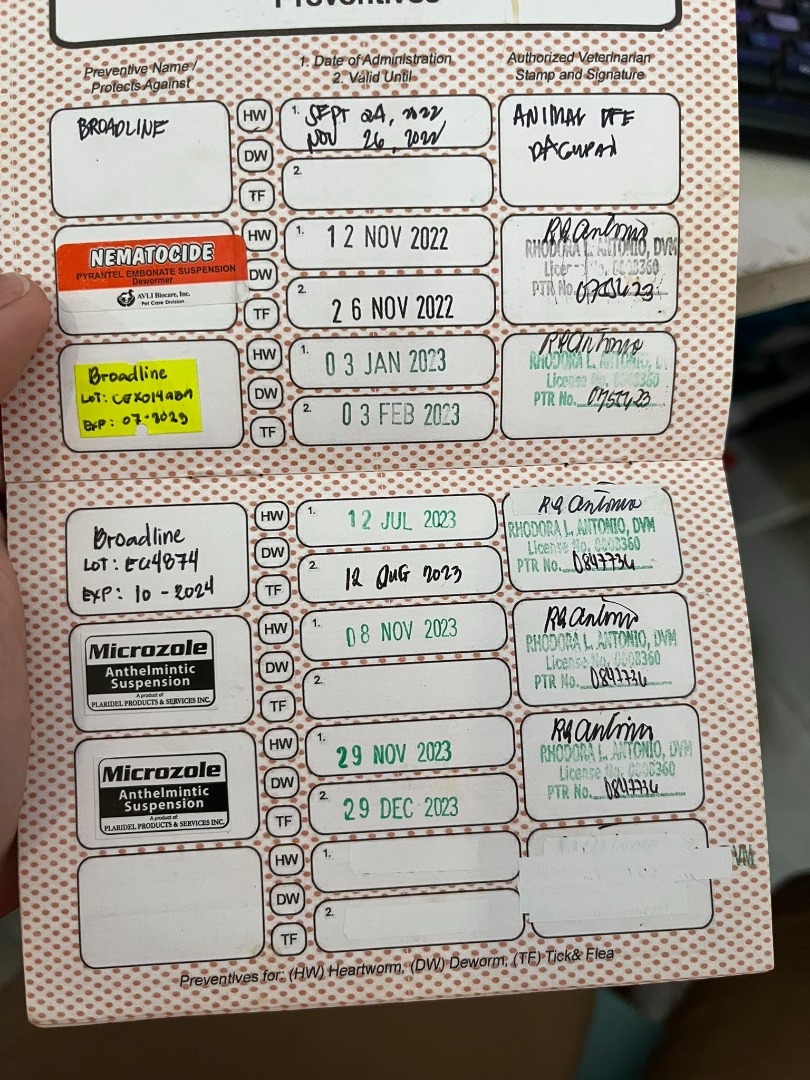 Preventives
Preventive Name /
Protects Against
1. Date of Administration
2. Valid Until
Authorized Veterinarian
Stamp and Signature
BROADLINE
HW
DW
TF
1. SEPT 24, 2022
NOV 26, 2022
2.
ANIMAL
DAGUPAN
NEMATOCIDE
PYRANTEL EMBONATE SUSPENSION
Dewormer
AVLI Biocare, Inc.
Pet Care Division
HW
DW
TF
1. 12 NOV 2022
2. 26 NOV 2022
RQ Antonio
RHODORA L. ANTONIO, DVM
License No.
PTR No.
Broadline
LOT:
EXP: 07-2023
HW
DW
TF
1. 03 JAN 2023
2. 03 FEB 2023
RQ Antonio
RHODORA L. ANTONIO,
License No.
PTR No.
Broadline
LOT: EG4874
EXP: 10-2024
HW
DW
TF
1. 12 JUL 2023
2. 12 AUG 2023
RQ Antonio
RHODORA L. ANTONIO, DVM
License No.
PTR No. 0847736
Microzole
Anthelmintic
Suspension
A product of
PLARIDEL PRODUCTS & SERVICES INC.
HW
DW
TF
1. 08 NOV 2023
2.
RQ Antonio
RHODORA L. ANTONIO, DVM
License No.
PTR No. 0847736
Microzole
Anthelmintic
Suspension
A product of
PLARIDEL PRODUCTS & SERVICES INC.
HW
DW
TF
1. 29 NOV 2023
2. 29 DEC 2023
RQ Antonio
RHODORA L. ANTONIO, DVM
License No.
PTR No. 0847736
HW
DW
TF
1.
2.
VM
Preventives for: (HW) Heartworm, (DW) Deworm, (TF) Tick& Flea